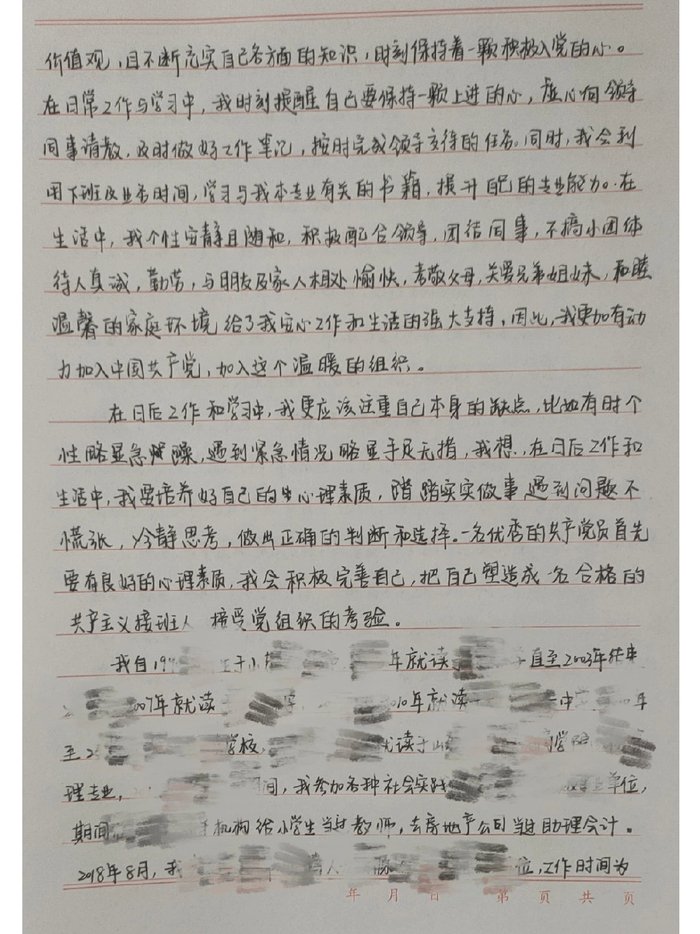 价值观，且不断充实自己各方面的知识，时刻保持着一颗积极入党的心。
在日常工作与学习中，我时刻提醒自己要保持一颗上进的心，虚心向领导
同事请教，及时做好工作笔记，按时完成领导交待的任务。同时，我会利
用下班及业务时间，学习与我本专业有关的书籍，提升自己的专业能力。在
生活中，我个性安静且随和，积极配合领导，团结同事，不搞小团体
待人真诚，勤劳，与朋友及家人相处愉快，孝敬父母，关爱兄弟姐妹，和睦
温馨的家庭环境给了我安心工作和生活的强大支持，因此，我更加有动
力加入中国共产党，加入这个温暖的组织。
在日后工作和学习中，我更应该注重自己本身的缺点，比如有时个
性略显急躁，遇到紧急情况略显手足无措，我想，在日后工作和
生活中，我要培养好自己的心理素质，踏踏实实做事，遇到问题不
慌张，冷静思考，做出正确的判断和选择。一名优秀的共产党员首先
要有良好的心理素质，我会积极完善自己，把自己塑造成名合格的
共产主义接班人 接受党组织的考验。
我自19 生于小 年就读 直至2003年结束
2 007年就读 010年就读 中 年
至2 学校， 就读于山 学院
理专业，2 间，我参加各种社会实践 单位，
期间 机构给小学生当过教师，去房地产公司当过助理会计。
2018年8月，我 人 位，工作时间为
年 月 日 第 页 共 页